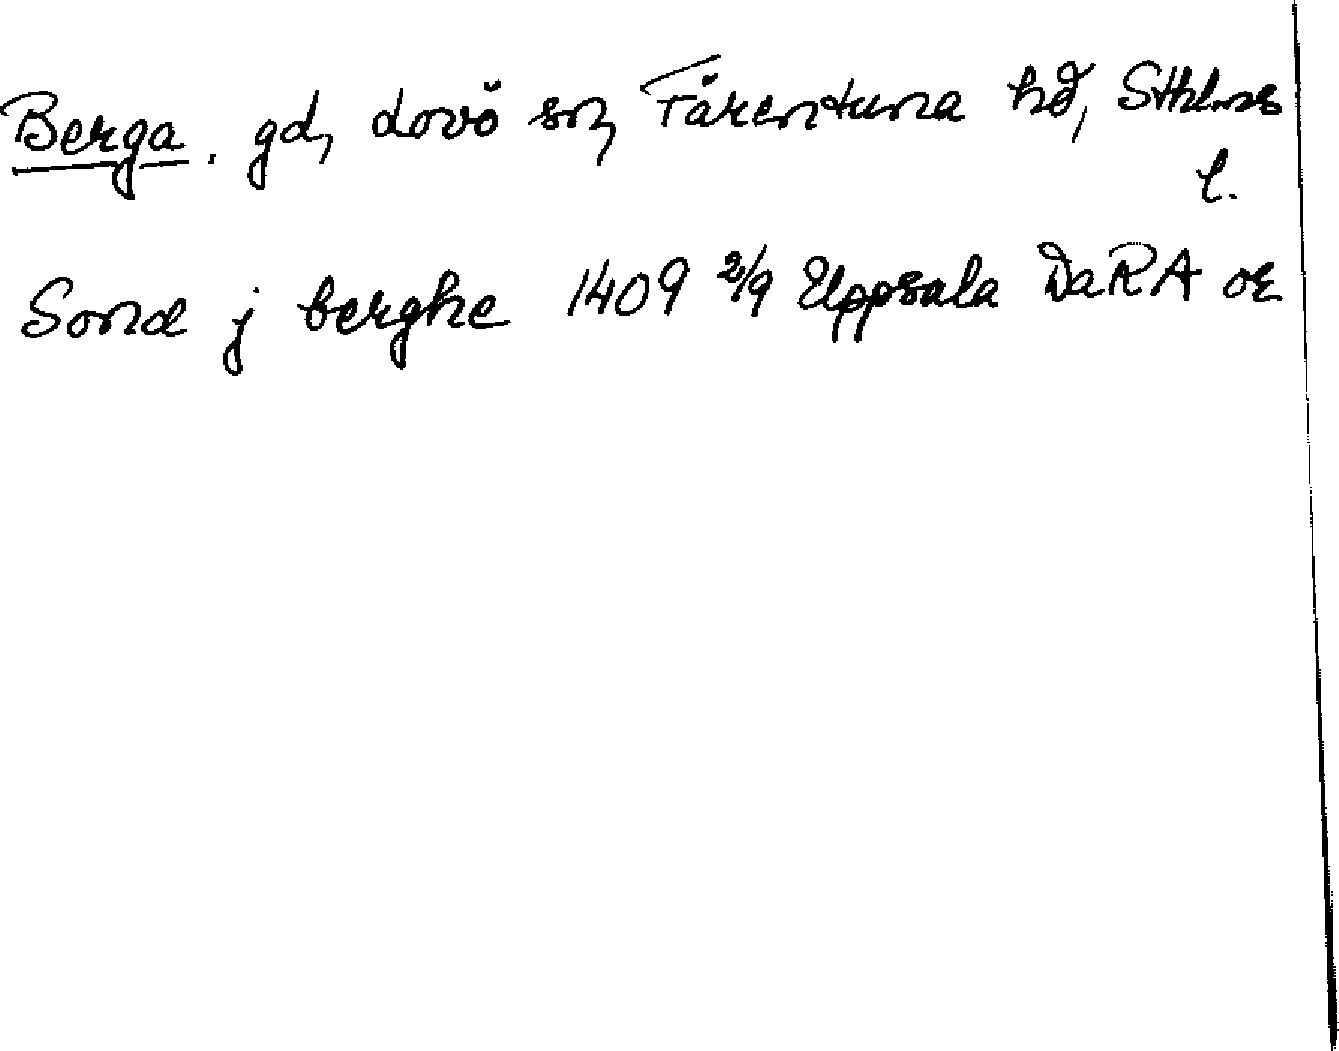 Berga. gd, Lovö sn, Färentuna hd, Sthlms
l.
Sond j berghe 1409 2/9 Uppsala DaRA or